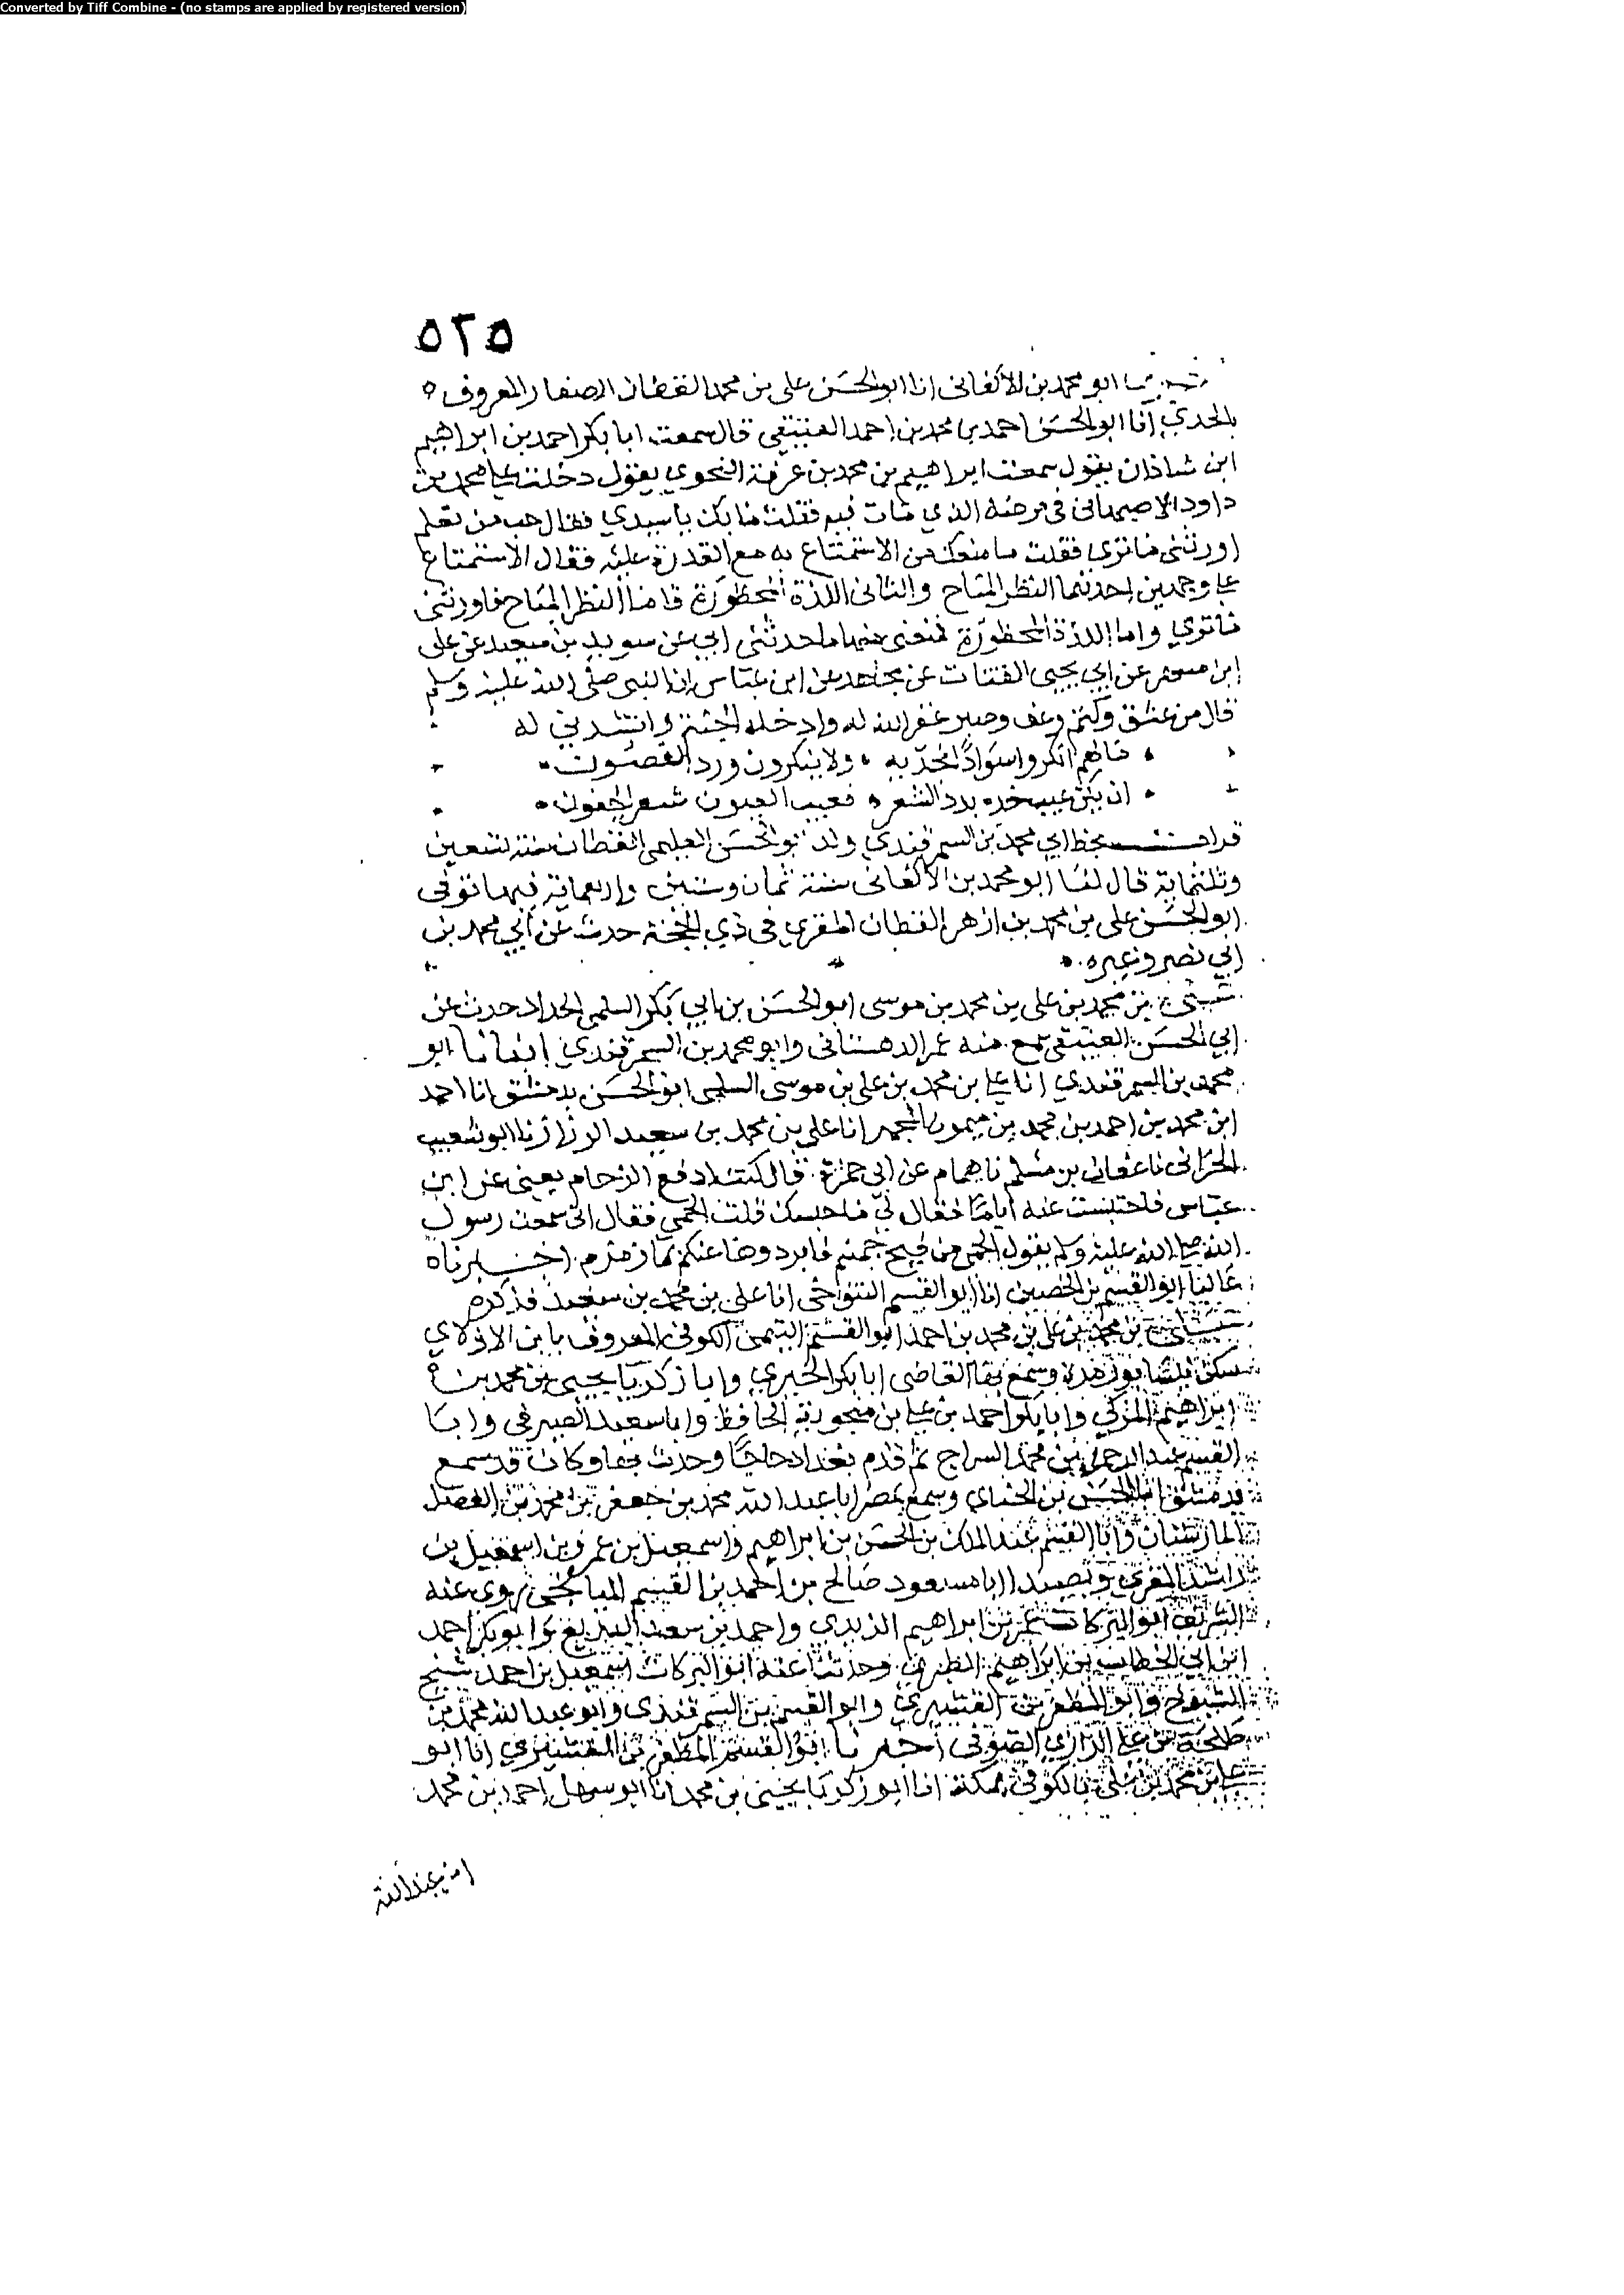 Converted by Tiff Combine - (no stamps are applied by registered version)
٥٢٥
ابو محمد بن الاكفانى انا ابو الحسن على بن محمد القطان الصفار المعروف
انا ابو الحسن احمد بن محمد بن احمد العتيقي قال سمعت ابا بكر احمد بن ابراهيم
ابن شاذان يقول سمعت ابراهيم بن محمد بن عرفة النحوي يقول دخلت على محمد بن
داود الاصبهانى فى مرضه الذي مات فيه فقلت ما بك يا سيدي فقال حب من تعلم
اورثنى ما ترى فقلت ما منعك من الاستمتاع به مع القدرة عليه فقال الاستمتاع
على وجهين احدهما النظر المباح والثانى اللذة المحظورة فاما النظر المباح فاورثنى
ما ترى واما اللذة المحظورة فمنعنى منها ما حدثنى ابي عن سويد بن سعيد عن على
ابن مسهر عن ابي يحيى القتات عن مجاهد عن ابن عباس ان النبى صلى الله عليه وسلم
قال من عشق وكتم وعف وصبر غفر الله له وادخله الجنة وانشدنى له
ما لهم انكروا سوادا بخديه ولا ينكرون ورد الغصون
ان يكن عيب خده بدد الشعر فعيب العيون شعر الجفون
قرات بخط ابي محمد بن السمرقندي ولد ابو الحسن القطان سنة تسعين
وثلثماية قال لنا ابو محمد بن الاكفانى سنة ثمان وستين واربعماية فيها توفى
ابو الحسن على بن محمد بن ازهر القطان المقرى فى ذي الحجة حدث عن ابي محمد بن
ابي نصر وغيره
على بن محمد بن على بن محمد بن موسى ابو الحسن بن ابي بكر السلمى الحداد حدث عن
ابي الحسن العتيقى سمع منه عمر الدهستانى وابو محمد بن السمرقندي انبانا ابو
محمد بن السمرقندي انا على بن محمد بن على بن موسى السلمى ابو الحسن بدمشق انا احمد
ابن محمد بن احمد بن محمد بن ميمون انا على بن محمد بن سعيد الرزاز نا ابو شعيب
الحرانى نا عفان بن مسلم نا همام عن ابى جمرة قال كنت ادفع الزحام يعنى عن ابن
عباس فاحتبست عنه اياما فقال لى ما حبسك قلت الحمى فقال انى سمعت رسول
الله صلى الله عليه وسلم يقول الحمى من فيح جهنم فابردوها عنكم بما زمزم اخبرناه
عاليا ابو القسم بن الحصين انا ابو القسم التنوخى انا على بن محمد بن سعيد فذكره
على بن محمد بن على بن محمد بن احمد ابو القسم التيمى الكوفى المعروف بابن
سكن نيسابور مدة وسمع بها القاضى ابا بكر الحيري وابا زكريا يحيى بن محمد بن
ابراهيم المزكي وابا بكر احمد بن على بن منجويه الحافظ وابا سعيد الصيرفى وابا
القسم عبد الرحمن بن محمد السراج ثم قدم بغداد حاجا وحدث بها وكان قد سمع
بدمشق ابا الحسن بن الحنائي وسمع بمصر ابا عبد الله محمد بن جعفر بن محمد بن الفضل
المارستان وابا القسم عبد الملك بن الحسن بن ابراهيم واسمعيل بن عمرو بن اسمعيل بن
راشد المقرى وبصيدا ابا مسعود صالح بن احمد بن القسم الميانجى روى عنه
الشريف ابو البركات عمر بن ابراهيم الزيدى واحمد بن سعد وابو بكر احمد
ابن ابي الخطاب بن ابراهيم الطبري وحدثنا عنه ابو البركات اسمعيل بن احمد شيخ
الشيوخ وابو المظفر بن القشيري وابو القسم بن السمرقندى وابو عبد الله محمد بن
طلحة بن على الرازي الصوفى اخبرنا ابو المظفر بن القشيري انا ابو
على بن محمد بن على الكوفى بمكة انا ابو زكريا يحيى بن محمد انا ابو سهل احمد بن محمد
ابن عبد الله